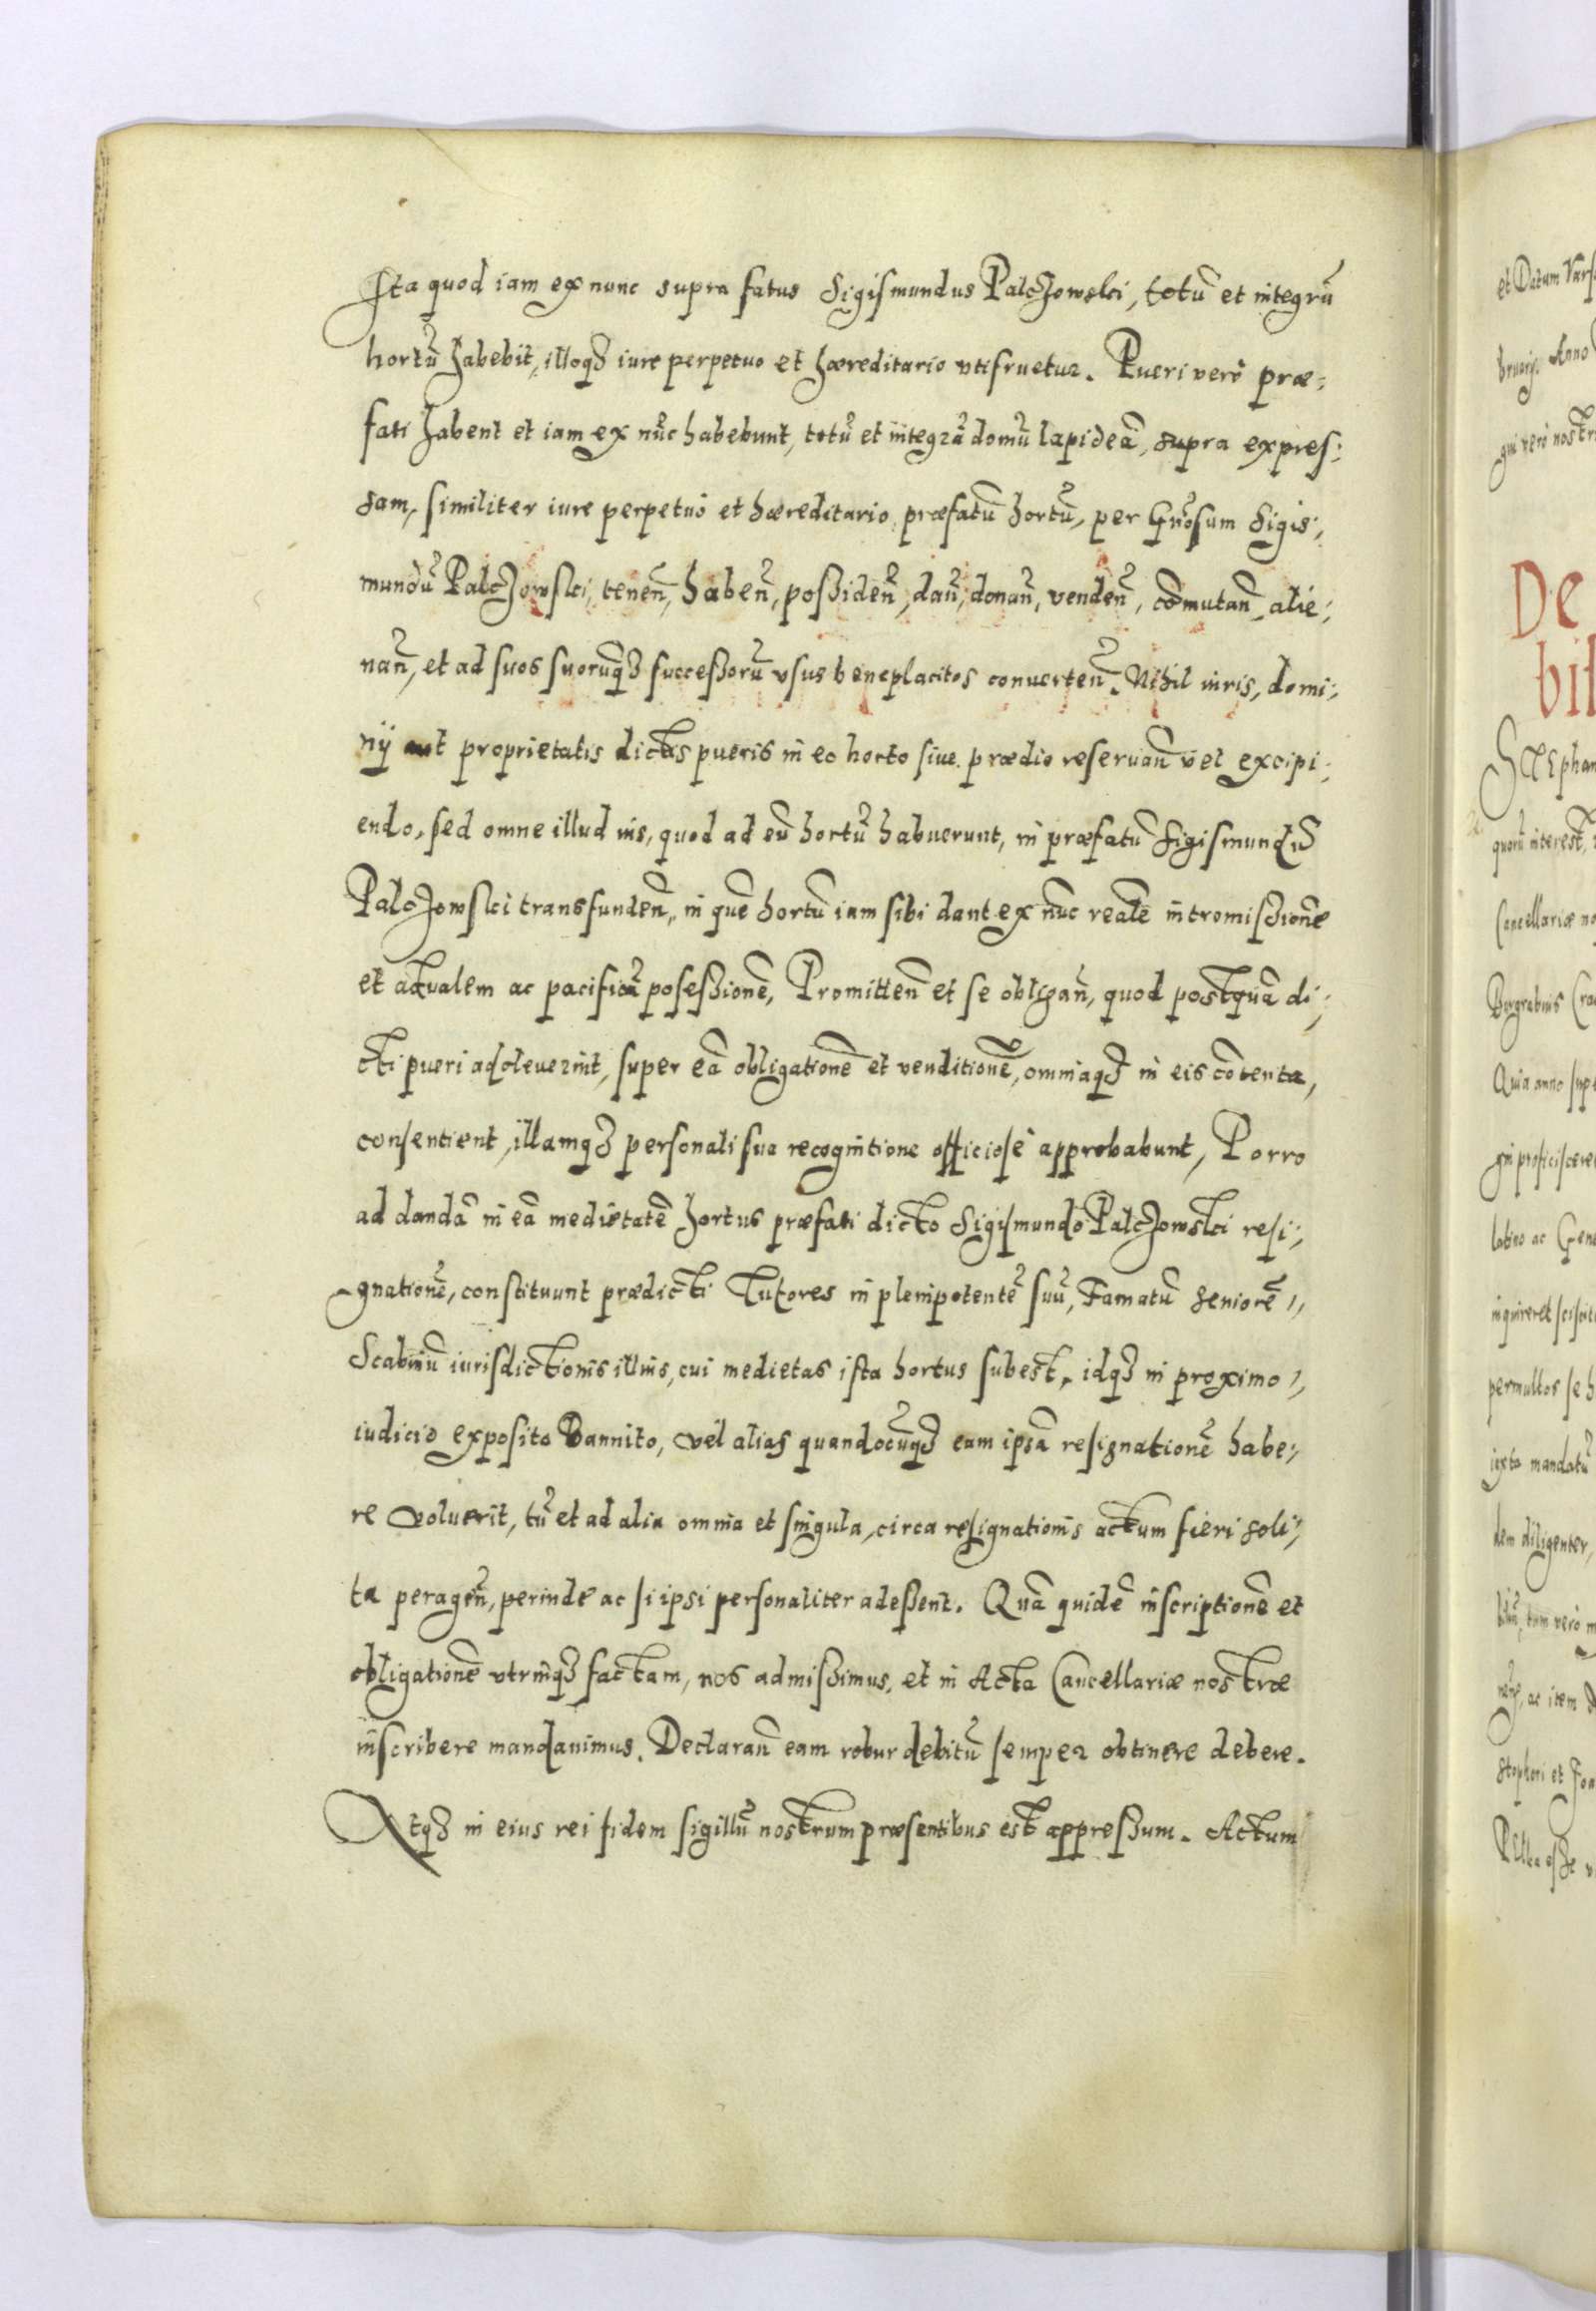 Ita quod iam ex nunc supra fatus Sigismundus Palczowski, totũ et integrũ
hortũ habebit, illoqȝ iure perpetuo et hæreditario vtifruetur. Pueri verò præ⸗
fati habent et iam ex nũc habebunt, totũ et integrã domũ lapideã, supra expres⸗
sam, similiter iure perpetuò et hæreditario, præfatũ hortũ, per Gñosum Sigis⸗
mundũ Palczowski, teneñ, habeñ, poßideñ, dañ, donañ, vendeñ, cõmutañ, alie⸗
nañ, et ad suos suorũqȝ succeßorũ vsus beneplacitos conuerteñ. Nihil iuris, domi⸗
nij aut proprietatis dictis pueris in eo horto siue prædio reseruañ vel excipi⸗
endo, sed omne illud ius, quod ad eũ hortũ habuerunt, in præfatũ Sigismundũ
Palczowski transfundeñ, in quẽ hortũ iam sibi dant ex nũc realẽ intromißionẽ
et actualem ac pacificã poseßionẽ, Promitteñ et se obligañ, quod postquã di⸗
cti pueri adoleuerint, super eã obligationẽ et venditionẽ, omniaqȝ in eis cõtenta,
consentient, illamqȝ personali sua recognitione officiosè approbabunt, Porro
ad dandã in eã medietatẽ hortus præfati dicto Sigismundo Palczowski resi⸗
gnationẽ, constituunt prædicti Tutores in plenipotentẽ suũ, Famatũ seniorẽ,
Scabinũ iurisdictionis illius, cui medietas ista hortus subest, idqȝ in proximo,
iudicio exposito Bannito, vel alias quandocũqȝ eam ipsã resignationẽ habe⸗
re voluerit, tũ et ad alia omnia et singula, circa resignationis actum fieri soli⸗
ta perageñ, perinde ac si ipsi personaliter adeßent. Quã quidẽ inscriptionẽ et
obligationẽ vtrinqȝ factam, nos admißimus, et in Acta Cancellariæ nostræ
inscribere mandauimus. Declarañ eam robur debitũ semper obtinere debere.
Atqȝ in eius rei fidem sigillũ nostrum præsentibus est appreßum. Actum
et Datum Vars
Anno
qui verò nostri
De
bil
Stephan
quorũ interest,
Cancellariæ no
Burgrabius Cra
Quia anno supe
labino ac Gene
permultos se h
iuxta mandatũ
dem diligenter,
tum verò
ac item
stophori et Joa